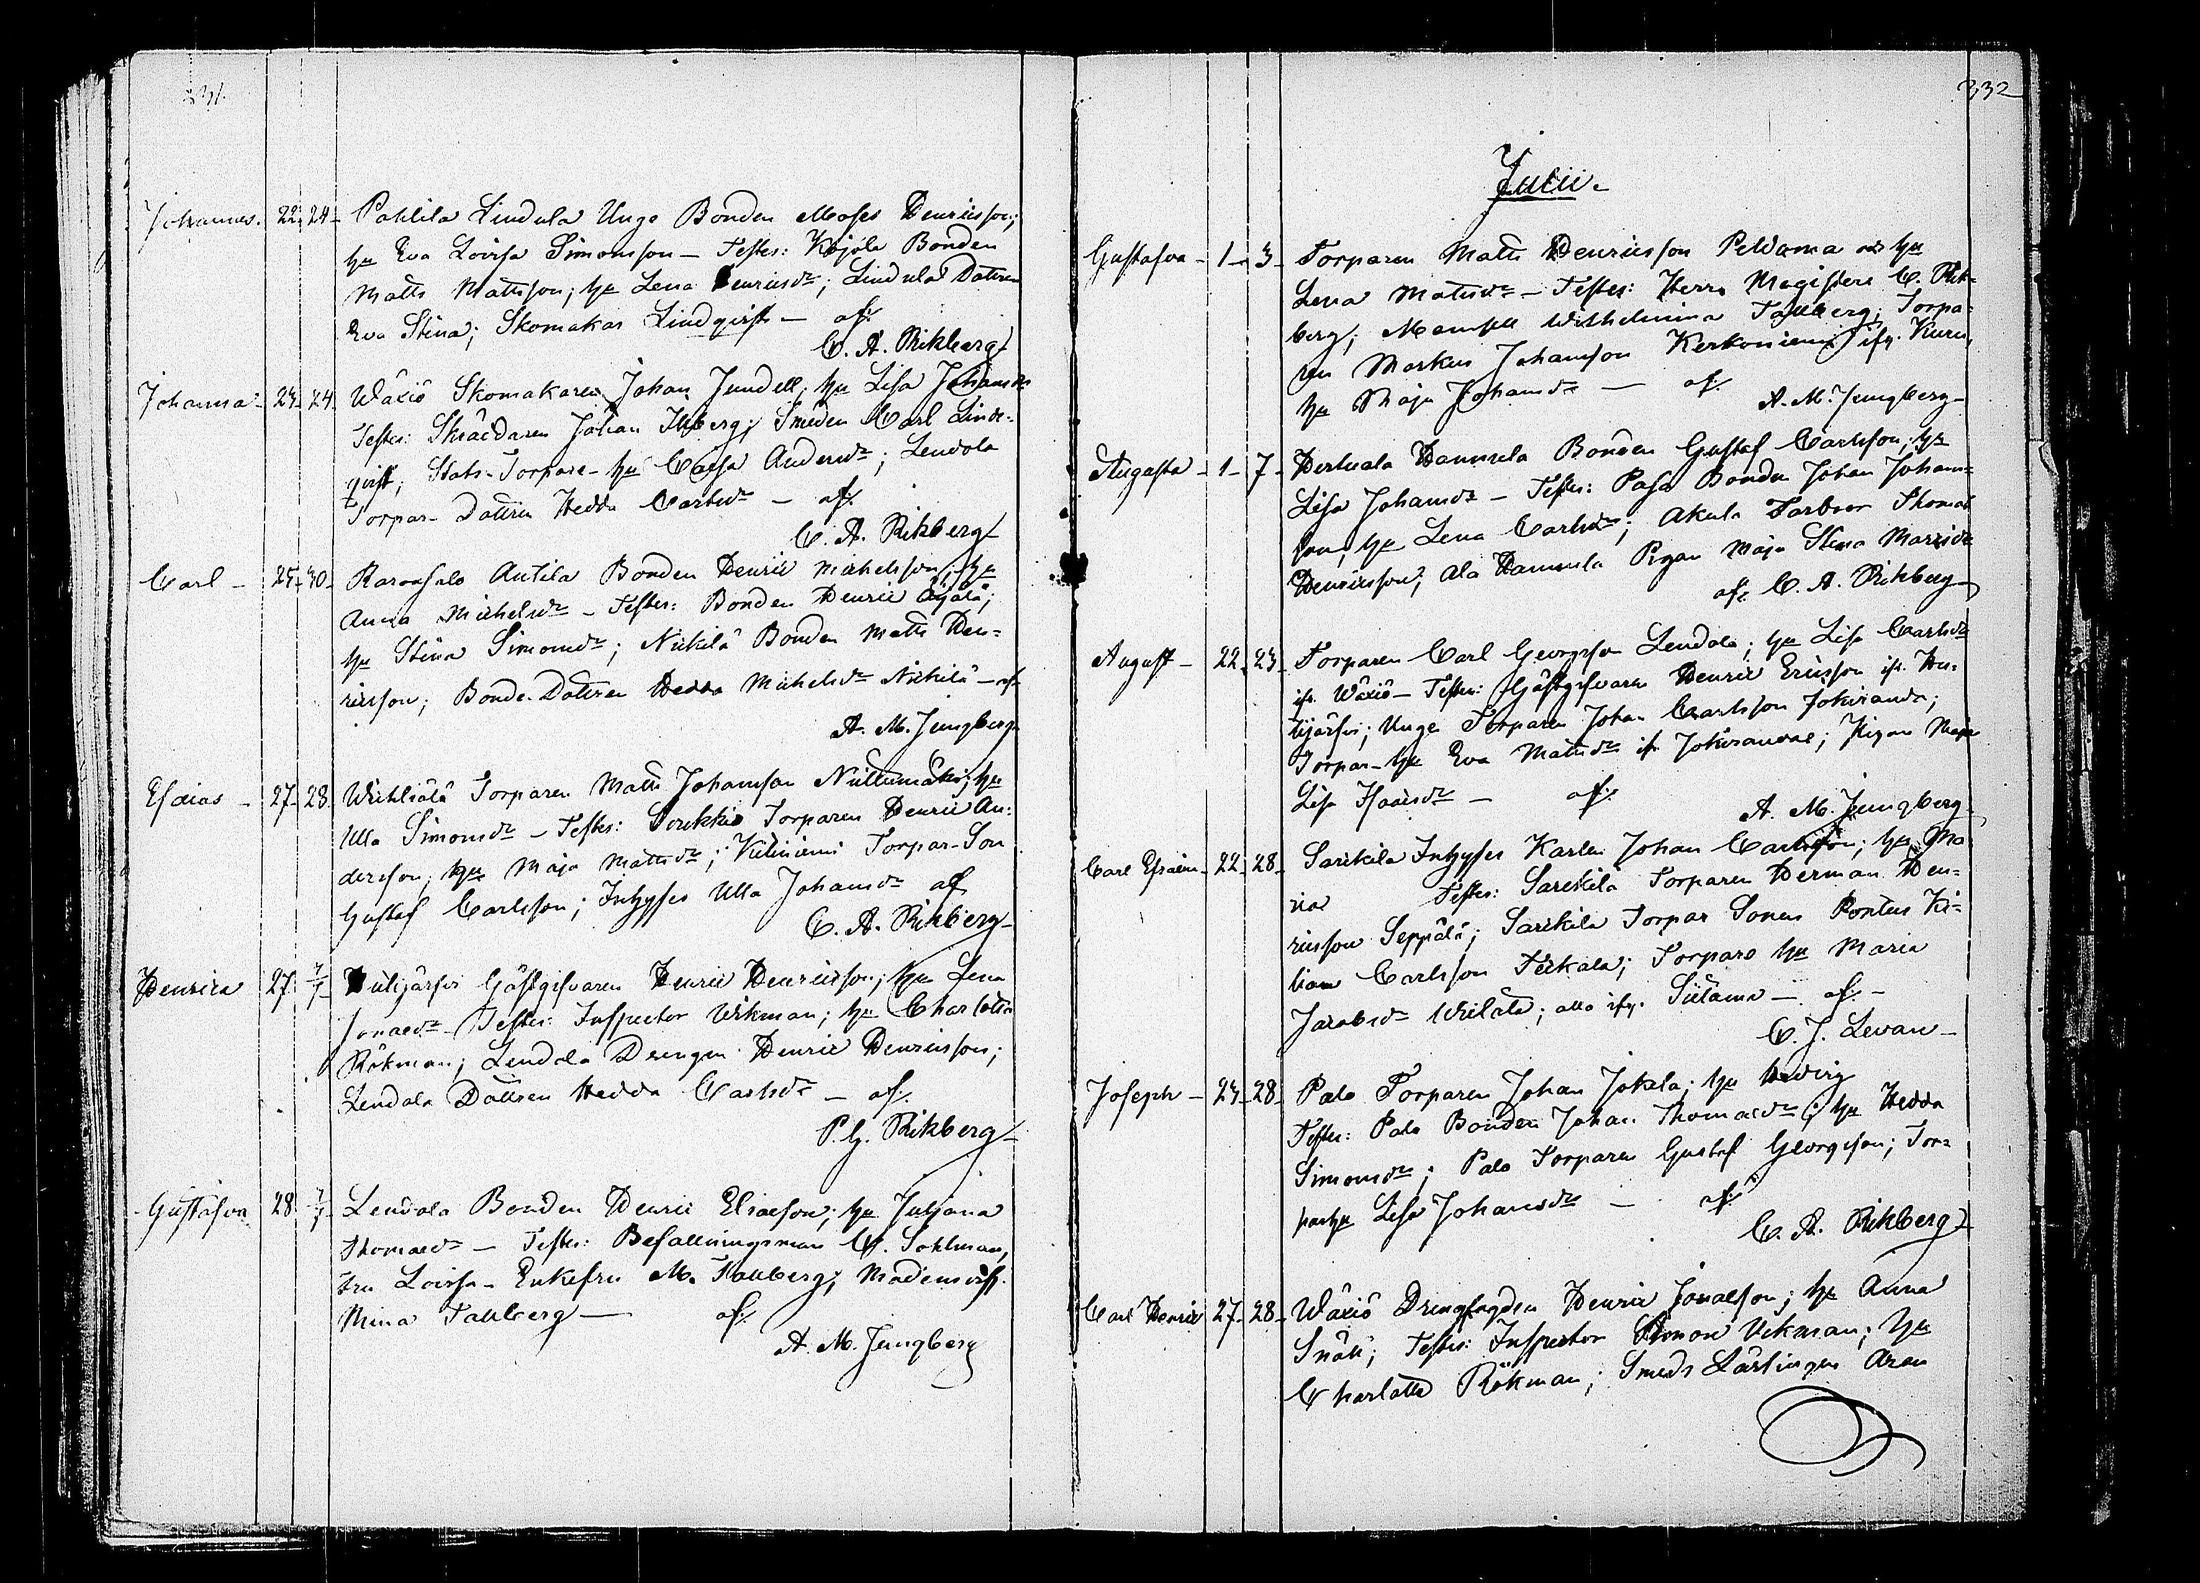 331.
Johannes. 22. 24. Pahlila Lindula Unge Bonden Moses Henricsson;
hu Eva Lovisa Simonsson — Testes: Kojola Bonden
Matts Mattsson; hu Lena Henricsdr; Lindula Dottren
Eva Stina; Skomakar Lindqvist — af:
C. A. Rikberg
Johanna 23. 24. Wäxiö Skomakaren Johan Jundell; hu Lisa Johansdr
Testes: Skräddaren Johan Ilberg; Smeden Carl Lind-
qvist; Stats-Torpare-hu Cajsa Andersdr; Lendola
Torpar-Dottren Hedda Carlsdr — af:
C. A. Rikberg
Carl — 25. 30. Antila Bonden Henric Michelsson; hu
Anna Michelsdr — Testes: Bonden Henric
hu Stina Simonsdr; Nickilä Bonden Matts Hen-
ricsson; Bonde-Dottren Hedda Michelsdr Nickilä — af:
A. M. Jungberg
Esaias — 27. 28. Torparen Matts Johansson hu
Ulla Simonsdr — Testes: Torparen Henric An-
dersson; hu Maja Mattsdr; Torpar-Son
Gustaf Carlsson; Inhyses Ulla Johansdr af
C. A. Rikberg
Henrica 27. 7/7 Gästgifvaren Henric Henricsson; hu Lena
Jonaedr — Testes: Inspector Wikman; hu Charlotta
Rökman; Lendola Drengen Henric Henricsson;
Lendola Dottren Hedda Carlsdr — af:
P. G. Rikberg
Gustafva 28. 7/7 Lendola Bonden Henric Eliaesson; hu Juliana
Thomaedr — Testes: Befallningsman C. Sohlman,
Fru Lovisa — Enkefru M. Tallberg; Mademoiss.
Mina Tallberg — af:
A. M. Jungberg
332
Julii.
Gustafva — 1 — 3. Torparen Matts Henricsson Peldama och hu
Lena Mattsdr — Testes: Herr Magistern C. Rik-
berg; Mamsell Wilhelmina Tallberg; Torpa-
ren Markus Johansson Kerkoniemi
hu Maja Johansdr — af:
A. M. Jungberg
Augusta — 1 — 7. Hannula Bonden Gustaf Carlsson; hu
Lisa Johansdr — Testes: Pasa Bonden Johan Johans-
son; hu Lena Carlsdr; Akula Thomas
Henricsson; Ala Hannula Pigan Maja Stina
af: C. A. Rikberg
August — 22. 23. Torparen Carl Georgsson Lendola; hu Lisa Carlsdr
ifr. Wäxiö — Testes: Gästgifvaren Henric Ericsson ifr. Hu-
lijärfvi; Unge Torparen Johan Carlsson Jokiranda;
Torpar-hu Eva Mattsdr ifr. Jokirandal; Pigan Maja
Lisa Isacsdr — af:
A. M. Jungberg
Carl Efraim 22. 28. Sarikila Inhyses Karlen Johan Carlsson; hu Ma-
ria Testes: Sarikila Torparen Herman Hen-
ricsson Seppälä; Sarikila Torpar Sonen Pontus Ki-
lian Carlsson Torpare hu Maria
Jacobsdr alla ifr. — af: —
C. J. Levan —
Joseph — 23. 28. Palo Torparen Johan Jokela; hu Hedvig
Testes: Palo Bonden Johan Thomaedr; hu Hedda
Simonsdr; Palo Torparen Gustaf Georgsson; Tor-
parhu Lisa Johansdr — af:
C. A. Rikberg
Carl Henric 27. 28. Wäxiö Drengfogden Henric Jonaesson; hu Anna
Snäll; Testes: Inspector Simon Wikman; hu
Charlotta Rökman; Smeds Lärlingen Aron